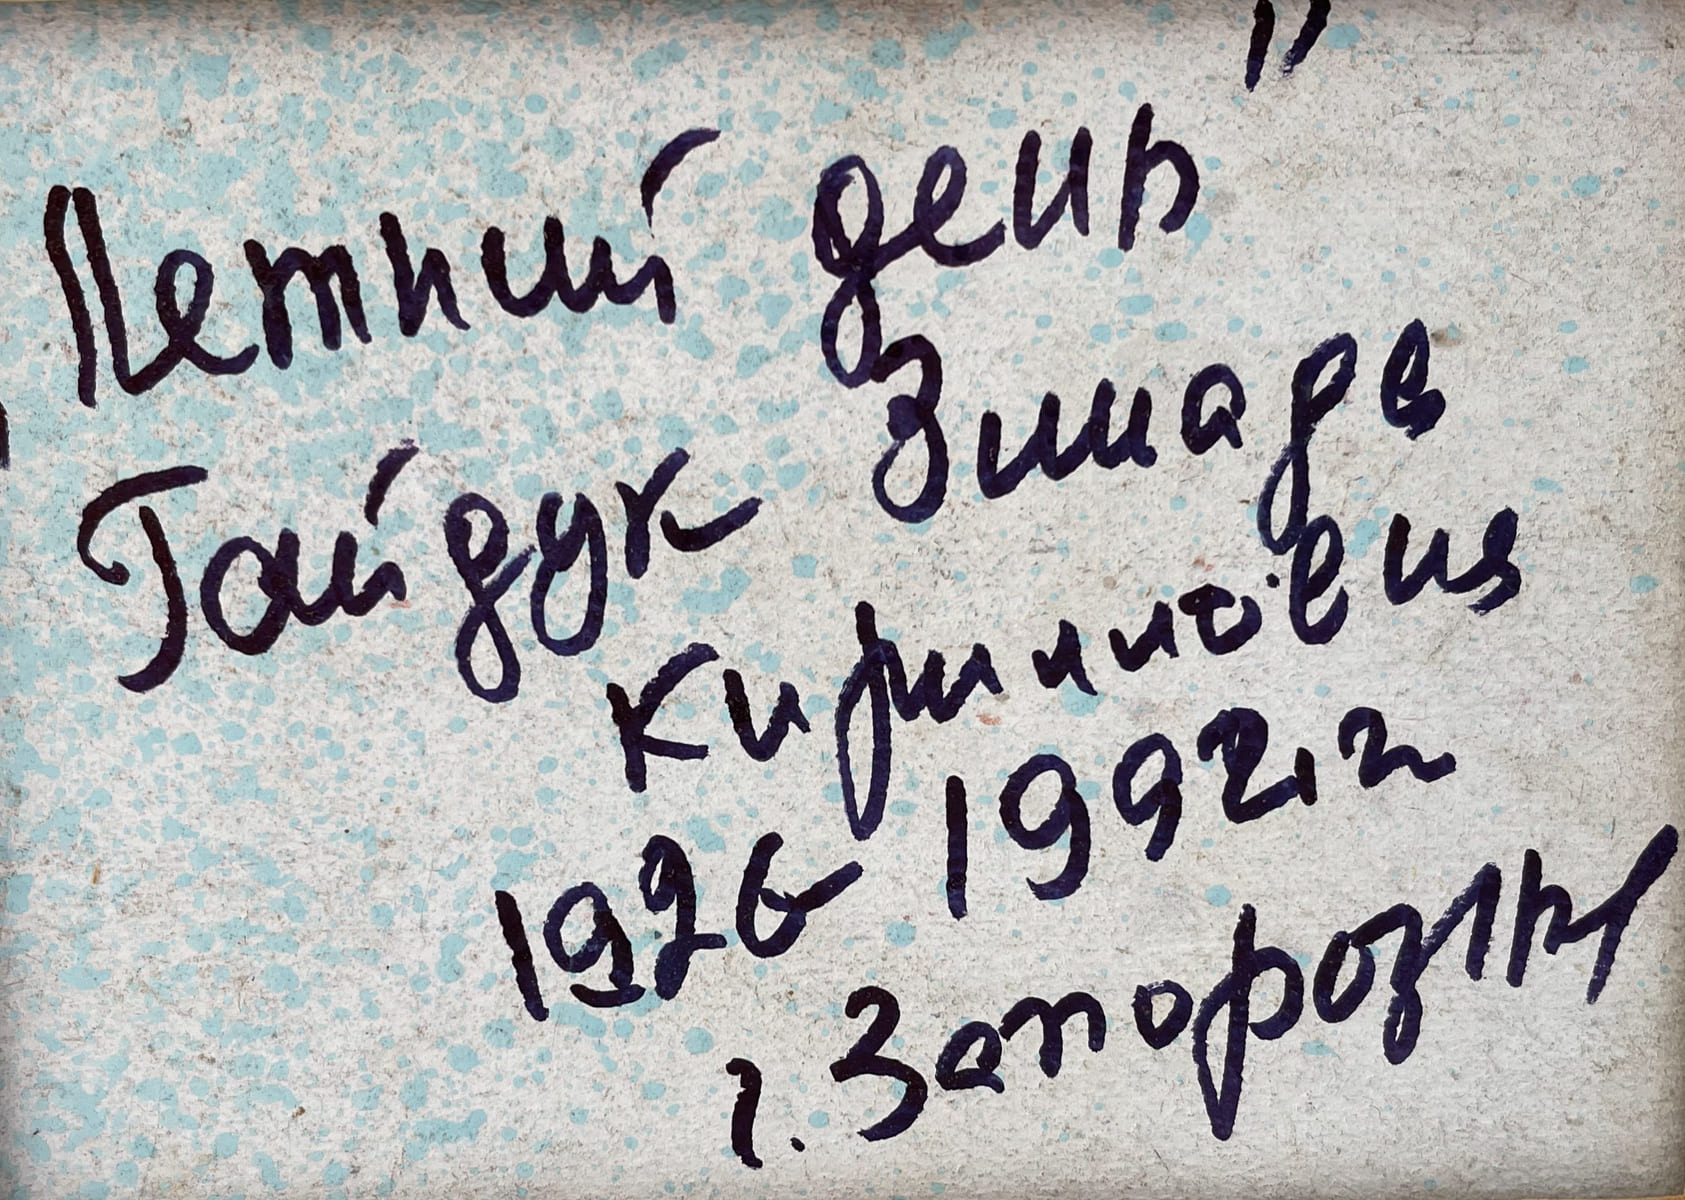 „Летний день"
Гайдук
Кирилловна
1926 1992г.г
г. Запорожье